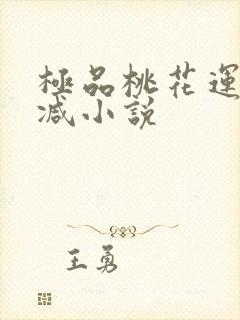 極品桃花運
减小説
王勇